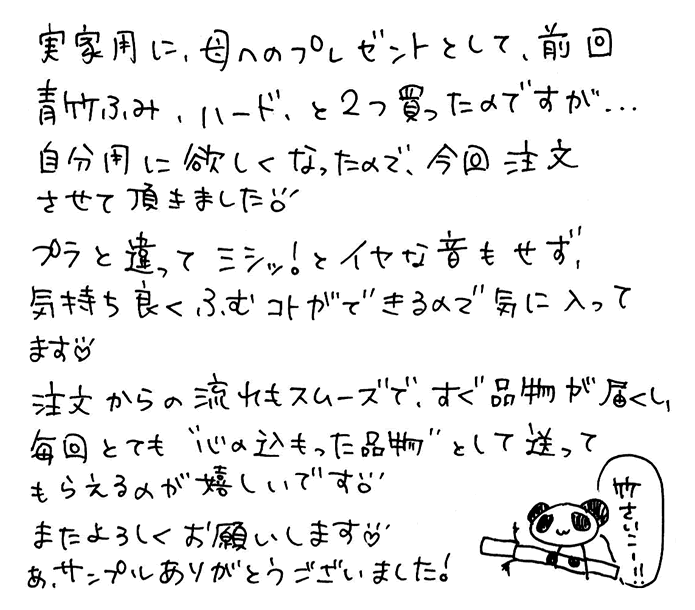 実家用に、母へのプレゼントとして、前回
青竹ふみ、ハード、と2つ買ったのですが...
自分用に欲しくなったので、今回注文
させて頂きました
プラと違ってミシッ!とイヤな音もせず、
気持ち良くふむコトができるので気に入って
ます♡
注文からの流れもスムーズで、すぐ品物が届くし、
毎回とても"心の込もった品物"として送って
もらえるのが嬉しいです
またよろしくお願いします♡
あ、サンプルありがとうございました!
竹さいこー!!